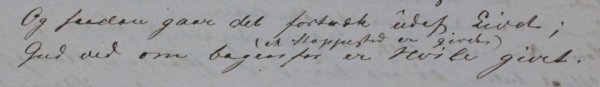 Og saadan gaar det fortræk udaf Livet;
(et Stoppested er givet)
Gud ved om bagenfor er Hvile givet.